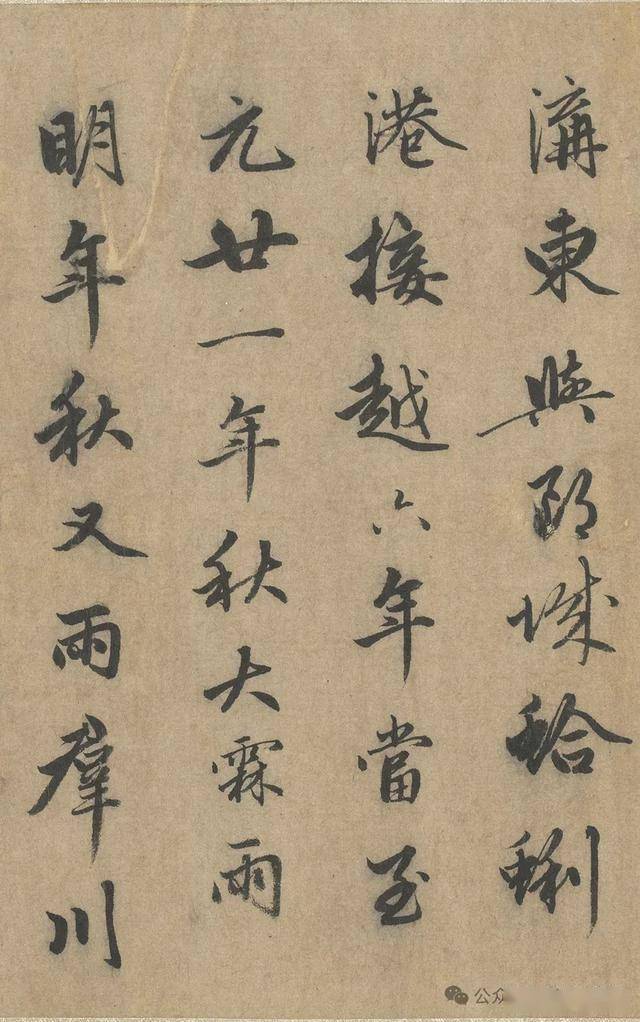 溝東與郡城蛤蜊
港接越六年當至
元廿一年秋大霖雨
明年秋又雨羣川
公众